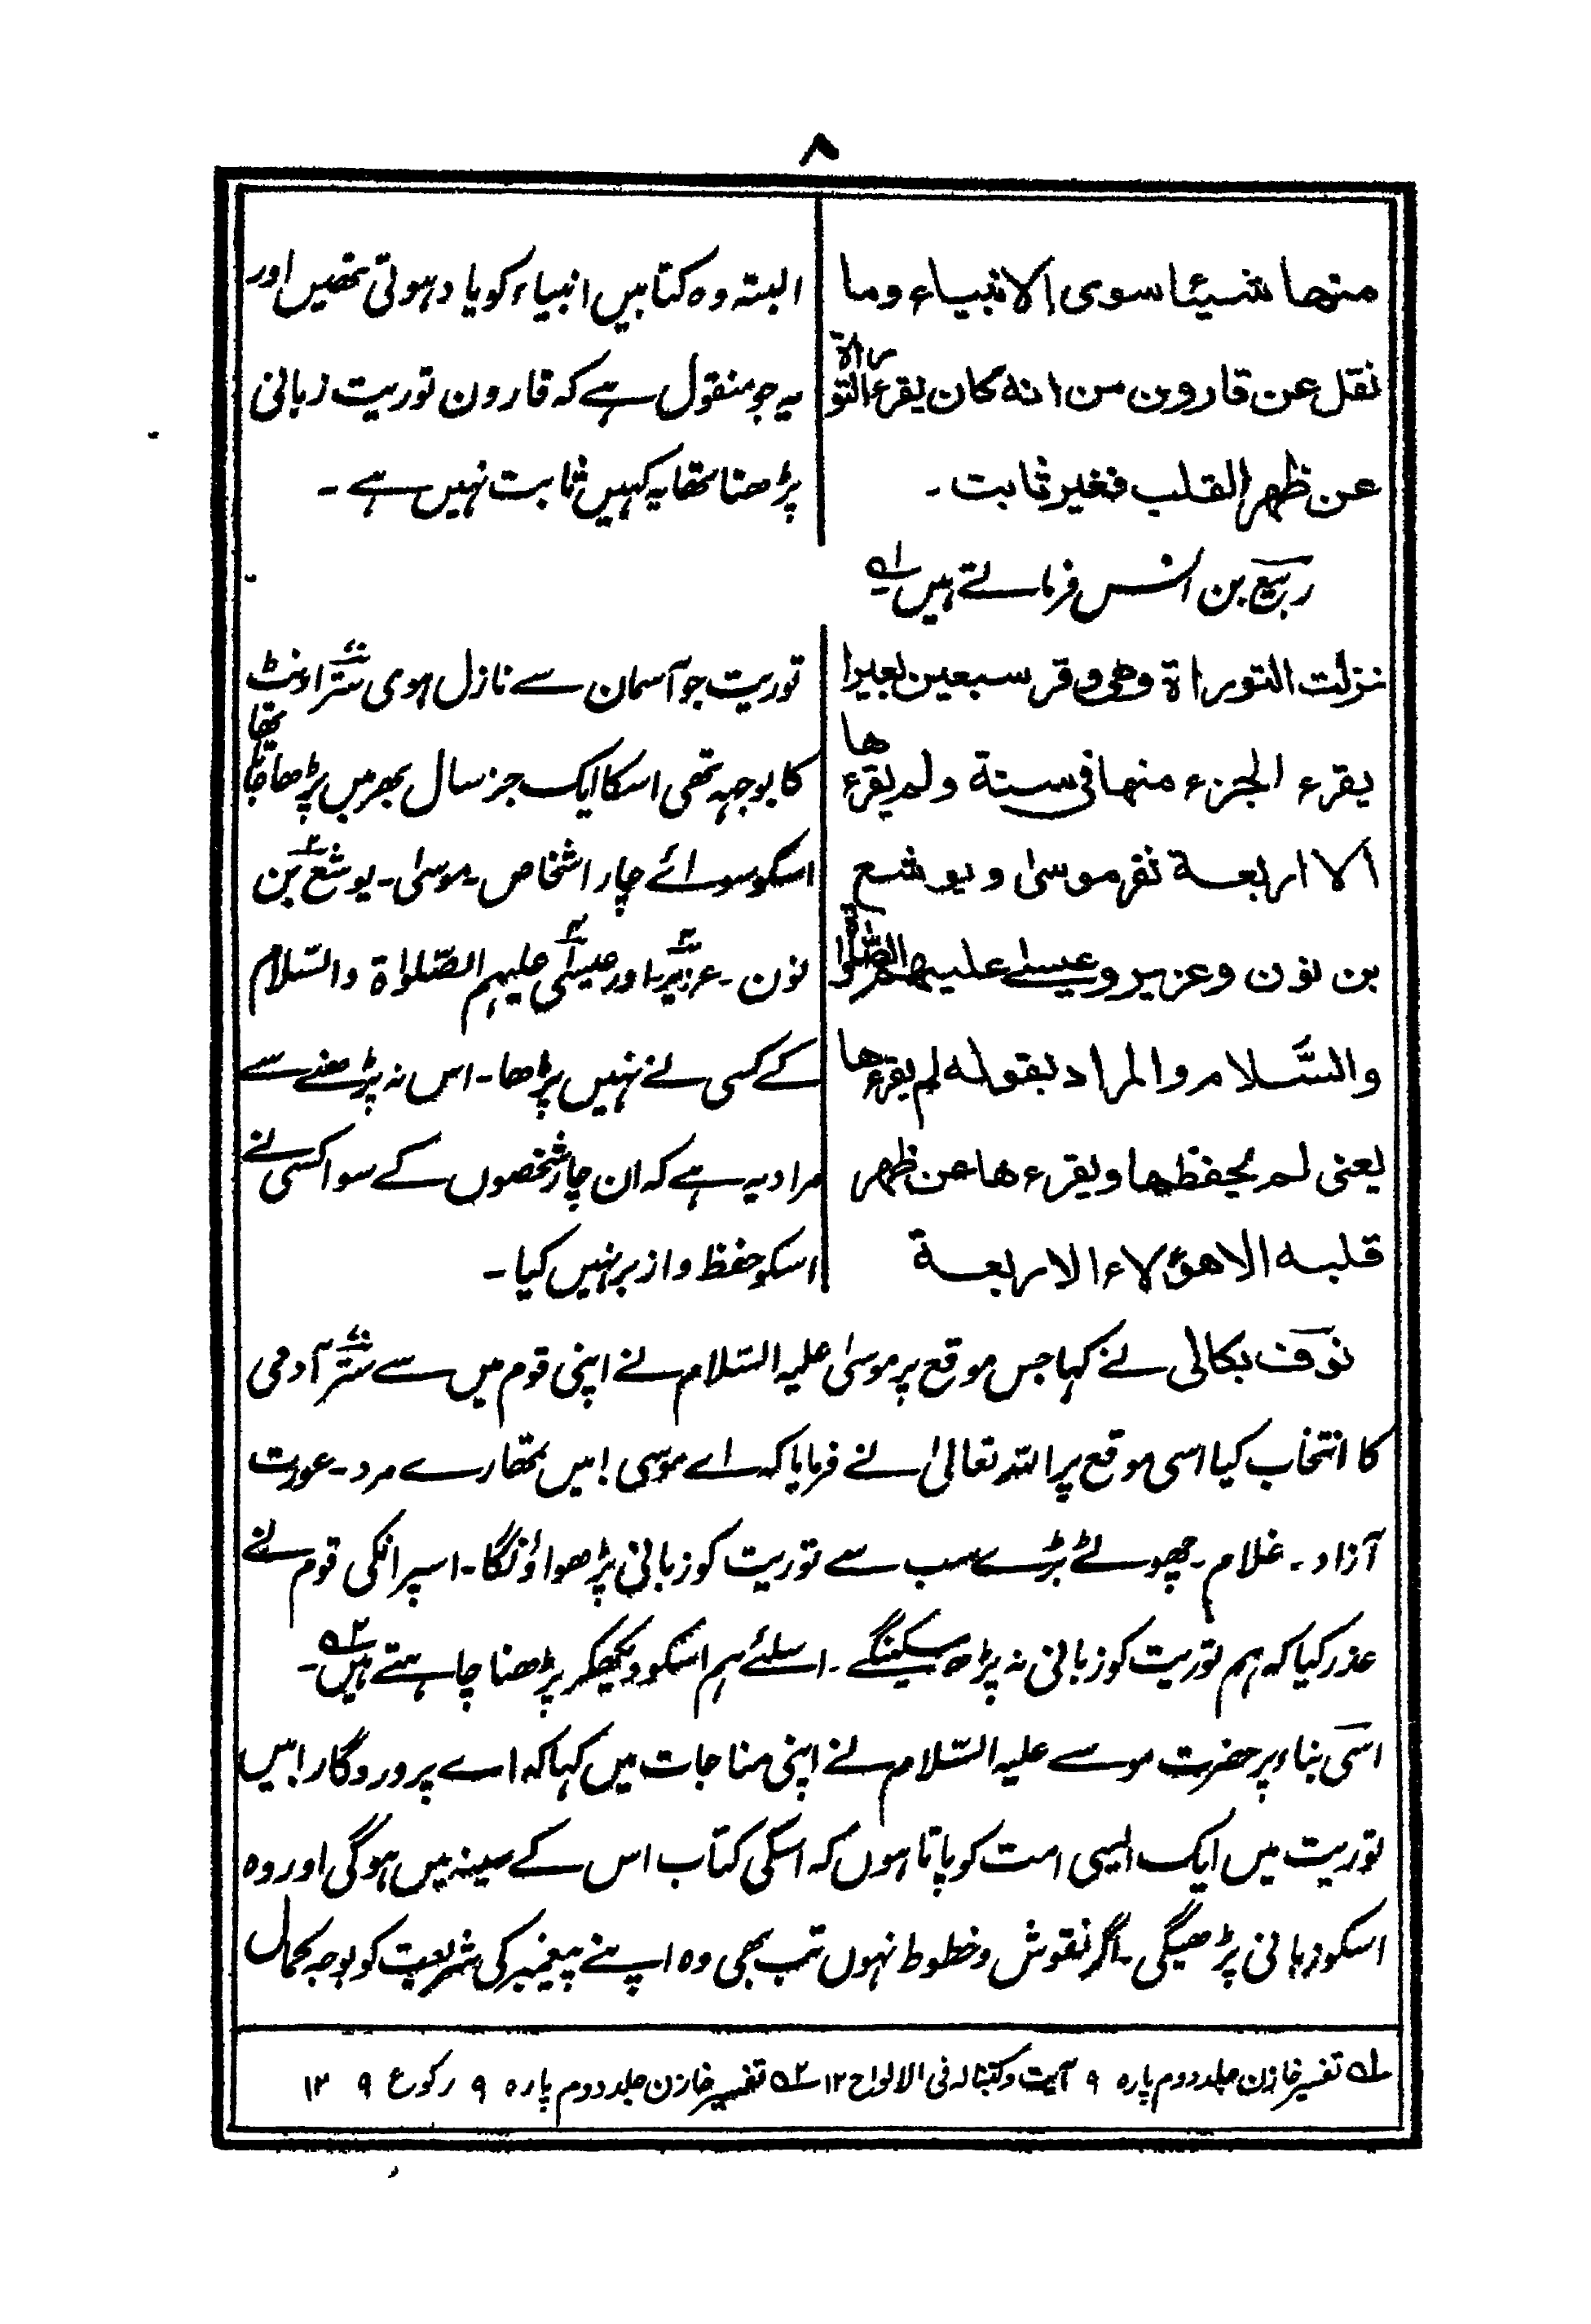 ۸
منها شيئا سوى الانبياء وما
نقل عن قارون من انه كان يقرء التوراة
عن ظهر القلب فغير ثابت ۔
البتہ وہ کتابیں انبیاء کو یاد ہوتی تھیں اور
یہ جو منقول ہے کہ قارون توریت زبانی
پڑھتا تھا یہ کہیں ثابت نہیں ہے ۔
ربیع بن انس فرماتے ہیں ۱ ۔
نزلت التوراة وهى وقر سبعين بعيرا
يقرء الجزء منها فى سنة ولم يقرءها
الا اربعة نفر موسىٰ ويوشع
بن نون وعزير وعيسىٰ عليهم الصّلوٰة
والسَّلام والمراد بقوله لم يقرءها
يعنى لم يحفظها ويقرءها عن ظهر
قلبه الا هؤلاء الاربعة
توریت جو آسمان سے نازل ہوی ستّر اونٹ
کا بوجہہ تھی اسکا ایک جز سال بھر میں پڑھا جاتا تھا
اسکو سوائے چار اشخاص ۔ موسیٰ ۔ یوشع بن
نون ۔ عزیر اور عیسیٰ علیہم الصّلواۃ والسّلام
کے کسی نے نہیں پڑھا ۔ اس نہ پڑھنے سے
مراد یہ ہے کہ ان چار شخصوں کے سوا کسی نے
اسکو حفظ و ازبر نہیں کیا ۔
نوف بکالی نے کہا جس موقع پر موسیٰ علیہ السّلام نے اپنی قوم میں سے ستّر آدمی
کا انتخاب کیا اسی موقع پر اللہ تعالیٰ نے فرمایا کہ اے موسی ! میں تمھارے مرد ۔ عورت
آزاد ۔ غلام ۔ چھوٹے بڑے سب سے توریت کو زبانی پڑھواؤنگا ۔ اسپر انکی قوم نے
عذر کیا کہ ہم توریت کو زبانی نہ پڑھ سکینگے ۔ اسلئے ہم اسکو دیکھکر پڑھنا چاہتے ہیں ۲ ۔
اسی بناء پر حضرت موسے علیہ السّلام نے اپنی مناجات میں کہا کہ اے پروردگار ! میں
توریت میں ایک ایسی امت کو پاتا ہوں کہ اسکی کتاب اس کے سینہ میں ہوگی اور وہ
اسکو زبانی پڑھیگی ۔ اگر نقوش و خطوط نہوں تب بھی وہ اپنے پیغمبر کی شریعت کو بوجہ کمال
۱ تفسیر خازن جلد دوم پارہ ۹ آیت وکتبنا لہ فی الالواح ۱۲ ۲ تفسیر خازن جلد دوم پارہ ۹ رکوع ۹ ۱۲